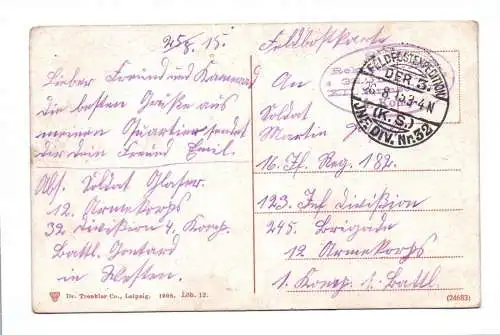 25/8. 15.
Feldpostkarte
Lieber Freund und Kamerad
die besten Grüße aus
meinen Quartier sendet
dir dein Freund Emil.
Abs. Soldat Glaser.
12. Armekorps
32. Division 4. Komp.
Battl.
in Westen.
FELDPOSTEXPEDITION
DER K.S.
8 15 3-4 N
(K.S.)
INF. DIV. Nr. 32
An
Soldat
Martin
16. Jf. Reg. 182.
123. Inf Division
245. Brigade
12 Armekorps
1. Komp. 1. Battl.
Dr. Trenkler Co., Leipzig. 1905. Löb. 12.
(24683)